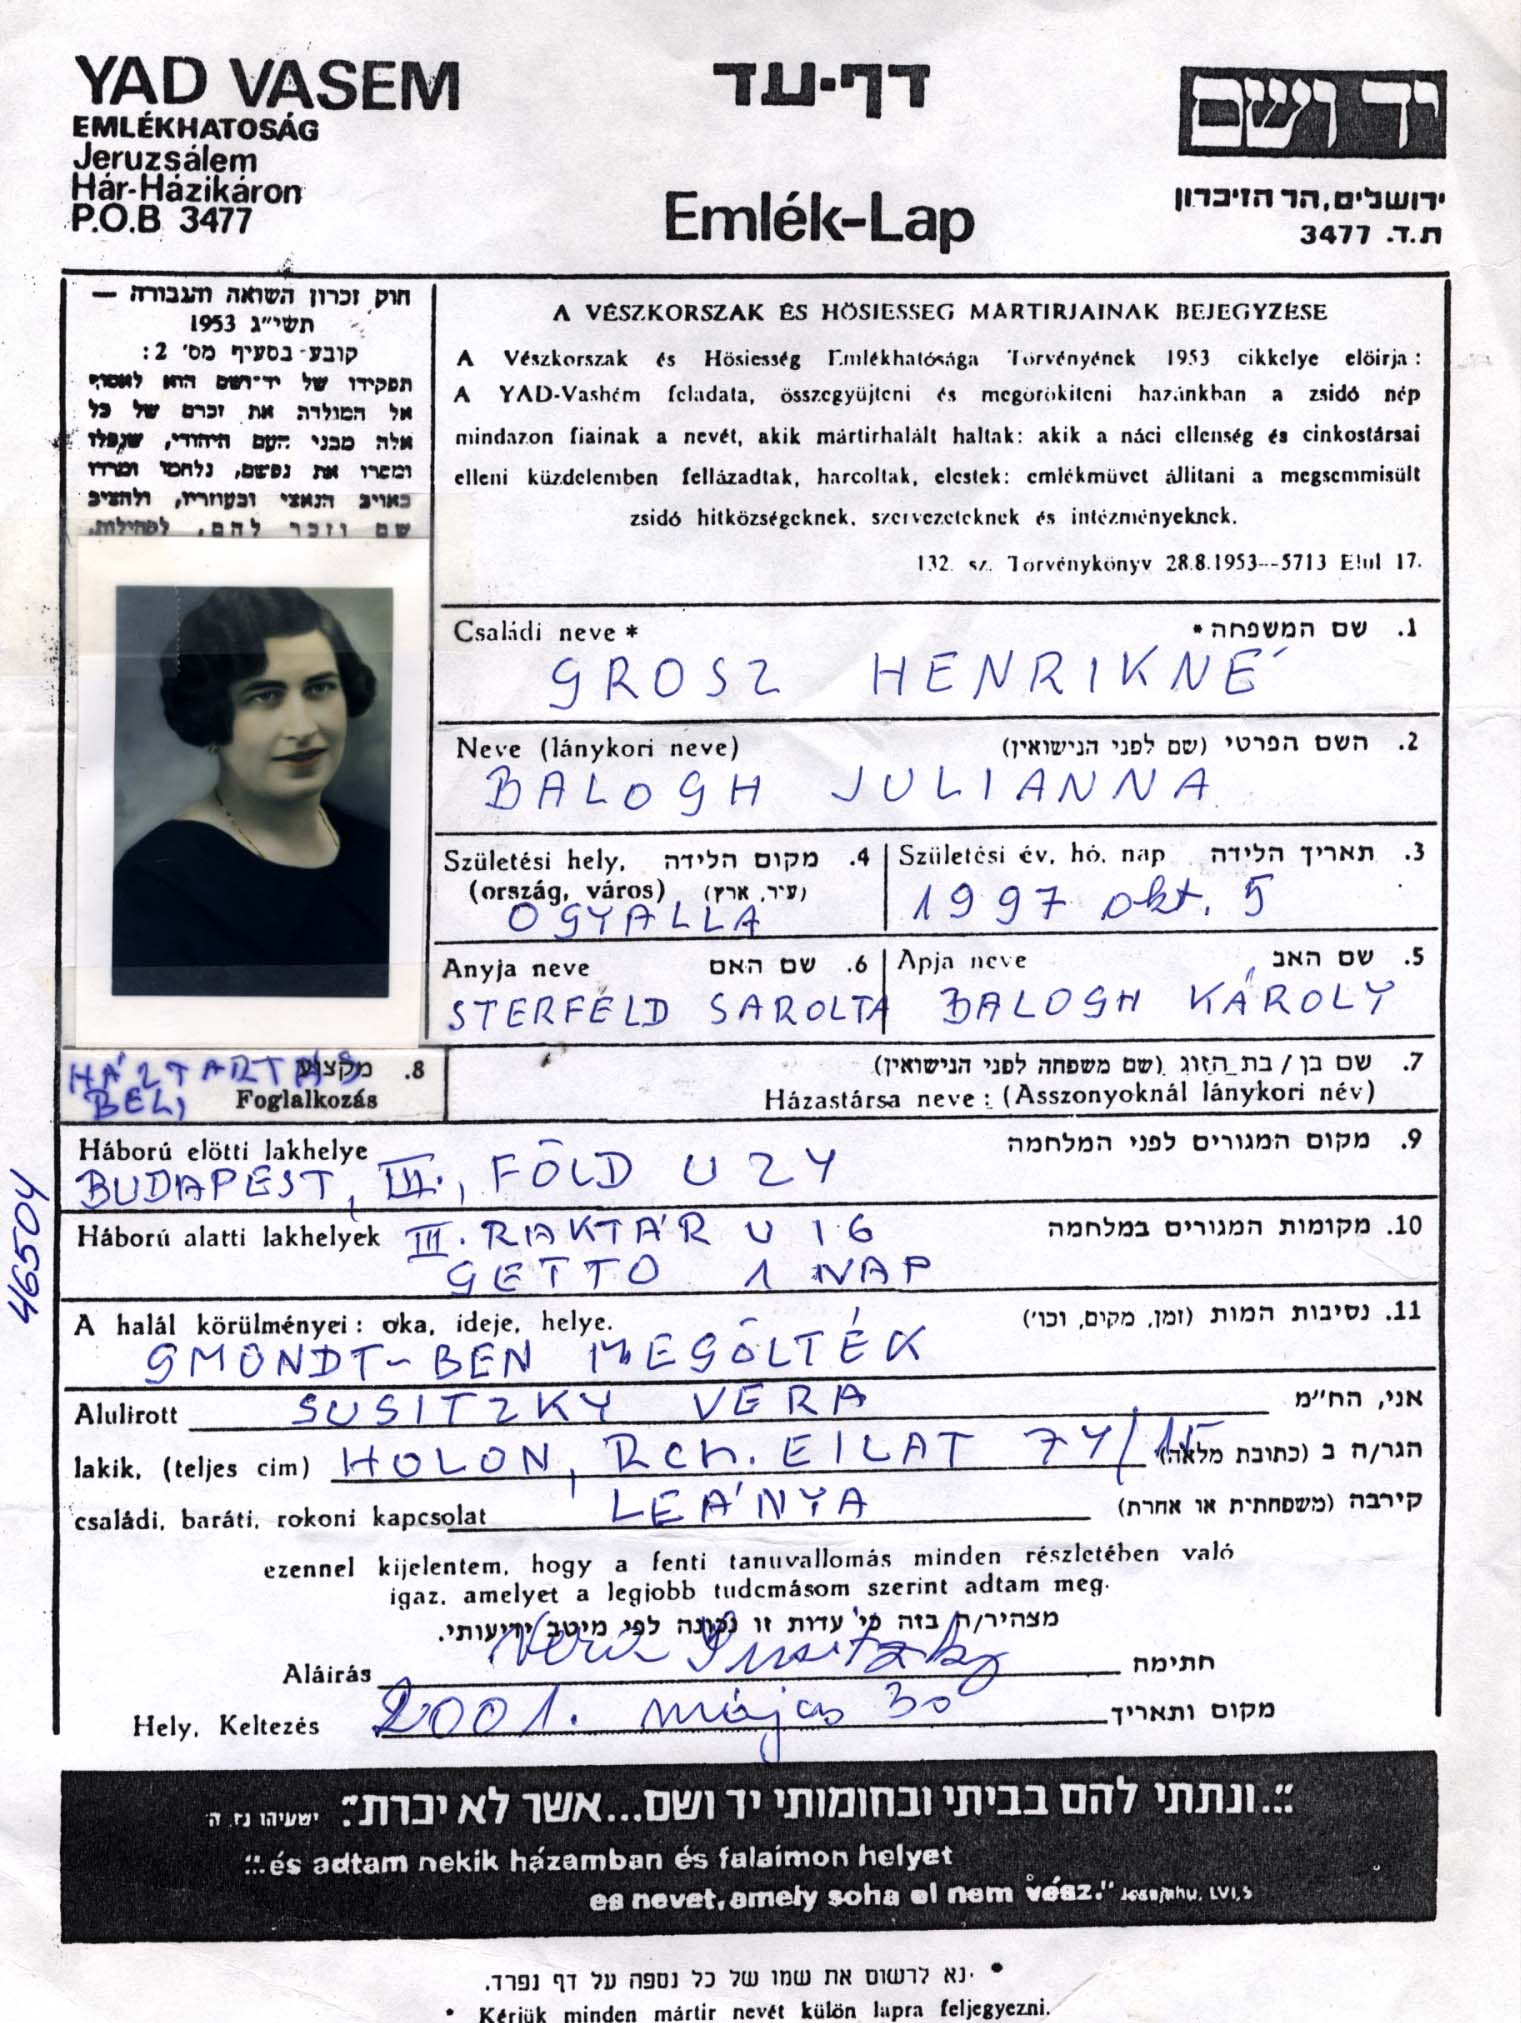 YAD VASEM
EMLÉKHATOSÁG
Jeruzsálem
Hár-Házikáron
P.O.B 3477
דף-עד
Emlék-Lap
יד ושם
ירושלים, הר הזיכרון
ת.ד. 3477
חוק זכרון השואה והגבורה —
תשי״ג 1953
קובע בסעיף מס׳ 2:
תפקידו של יד־ושם הוא לאסוף
אל המולדת את זכרם של כל
אלה מבני העם היהודי, שנפלו
ומסרו את נפשם, נלחמו ומרדו
באויב הנאצי ובעוזריו, ולהציב
שם וזכר להם, לקהילות,
A VÉSZKORSZAK ÉS HÖSIESSEG MARTIRJAINAK BEJEGYZÉSE
A Vészkorszak és Hösiesség Emlékhatósága Törvényének 1953 cikkelye elöirja:
A YAD-Vashém feladata, összegyüjteni és megörökiteni hazánkban a zsidó nép
mindazon fiainak a nevét, akik mártirhalált haltak: akik a náci ellenség és cinkostársai
elleni küzdelemben fellázadtak, harcoltak, elestek: emlékmüvet állitani a megsemmisült
zsidó hitközségeknek, szervezeteknek és intézményeknek.
132. sz. Törvénykönyv 28.8.1953--5713 Elul 17.
Családi neve * שם המשפחה * .1
GROSZ HENRIKNÉ
Neve (lánykori neve) השם הפרטי (שם לפני הנישואין) .2
BALOGH JULIANNA
Születési hely, מקום הלידה .4
(ország, város) (עיר, ארץ)
OGYALLA
Születési év, hó, nap תאריך הלידה .3
1997 okt. 5
Anyja neve שם האם .6
STERFELD SAROLTA
Apja neve שם האב .5
BALOGH KÁROLY
HÁZTARTÁS מקצוע .8
BELI Foglalkozás
שם בן / בת הזוג (שם משפחה לפני הנישואין) .7
Házastársa neve: (Asszonyoknál lánykori név)
Háború elötti lakhelye מקום המגורים לפני המלחמה .9
BUDAPEST, III., FÖLD U 24
Háború alatti lakhelyek מקומות המגורים במלחמה .10
III. RAKTÁR U 16
GETTO 1 NAP
A halál körülményei: oka, ideje, helye. נסיבות המות (זמן, מקום, וכו׳) .11
GMÜNDT-BEN MEGÖLTÉK
Alulirott SUSITZKY VERA אני, הח״מ
lakik, (teljes cim) HOLON, RCH. EILAT 74/15 הגר/ה ב (כתובת מלאה)
családi, baráti, rokoni kapcsolat LEÁNYA קירבה (משפחתית או אחרת)
ezennel kijelentem, hogy a fenti tanuvallomás minden részletében való
igaz, amelyet a legjobb tudcmásom szerint adtam meg.
מצהיר/ה בזה כי עדות זו נכונה לפי מיטב ידיעותי.
Aláirás Vera Susitzky חתימה
Hely, Keltezés 2001. május 30 מקום ותאריך
46504
״...ונתתי להם בביתי ובחומותי יד ושם...אשר לא יכרת״. ישעיהו נז, ה
"...és adtam nekik házamban és falaimon helyet
es nevet, amely soha el nem vész." Jesajahu, LVI,5
* נא לרשום את שמו של כל נספה על דף נפרד.
* Kérjük minden mártir nevét külön lapra feljegyezni.